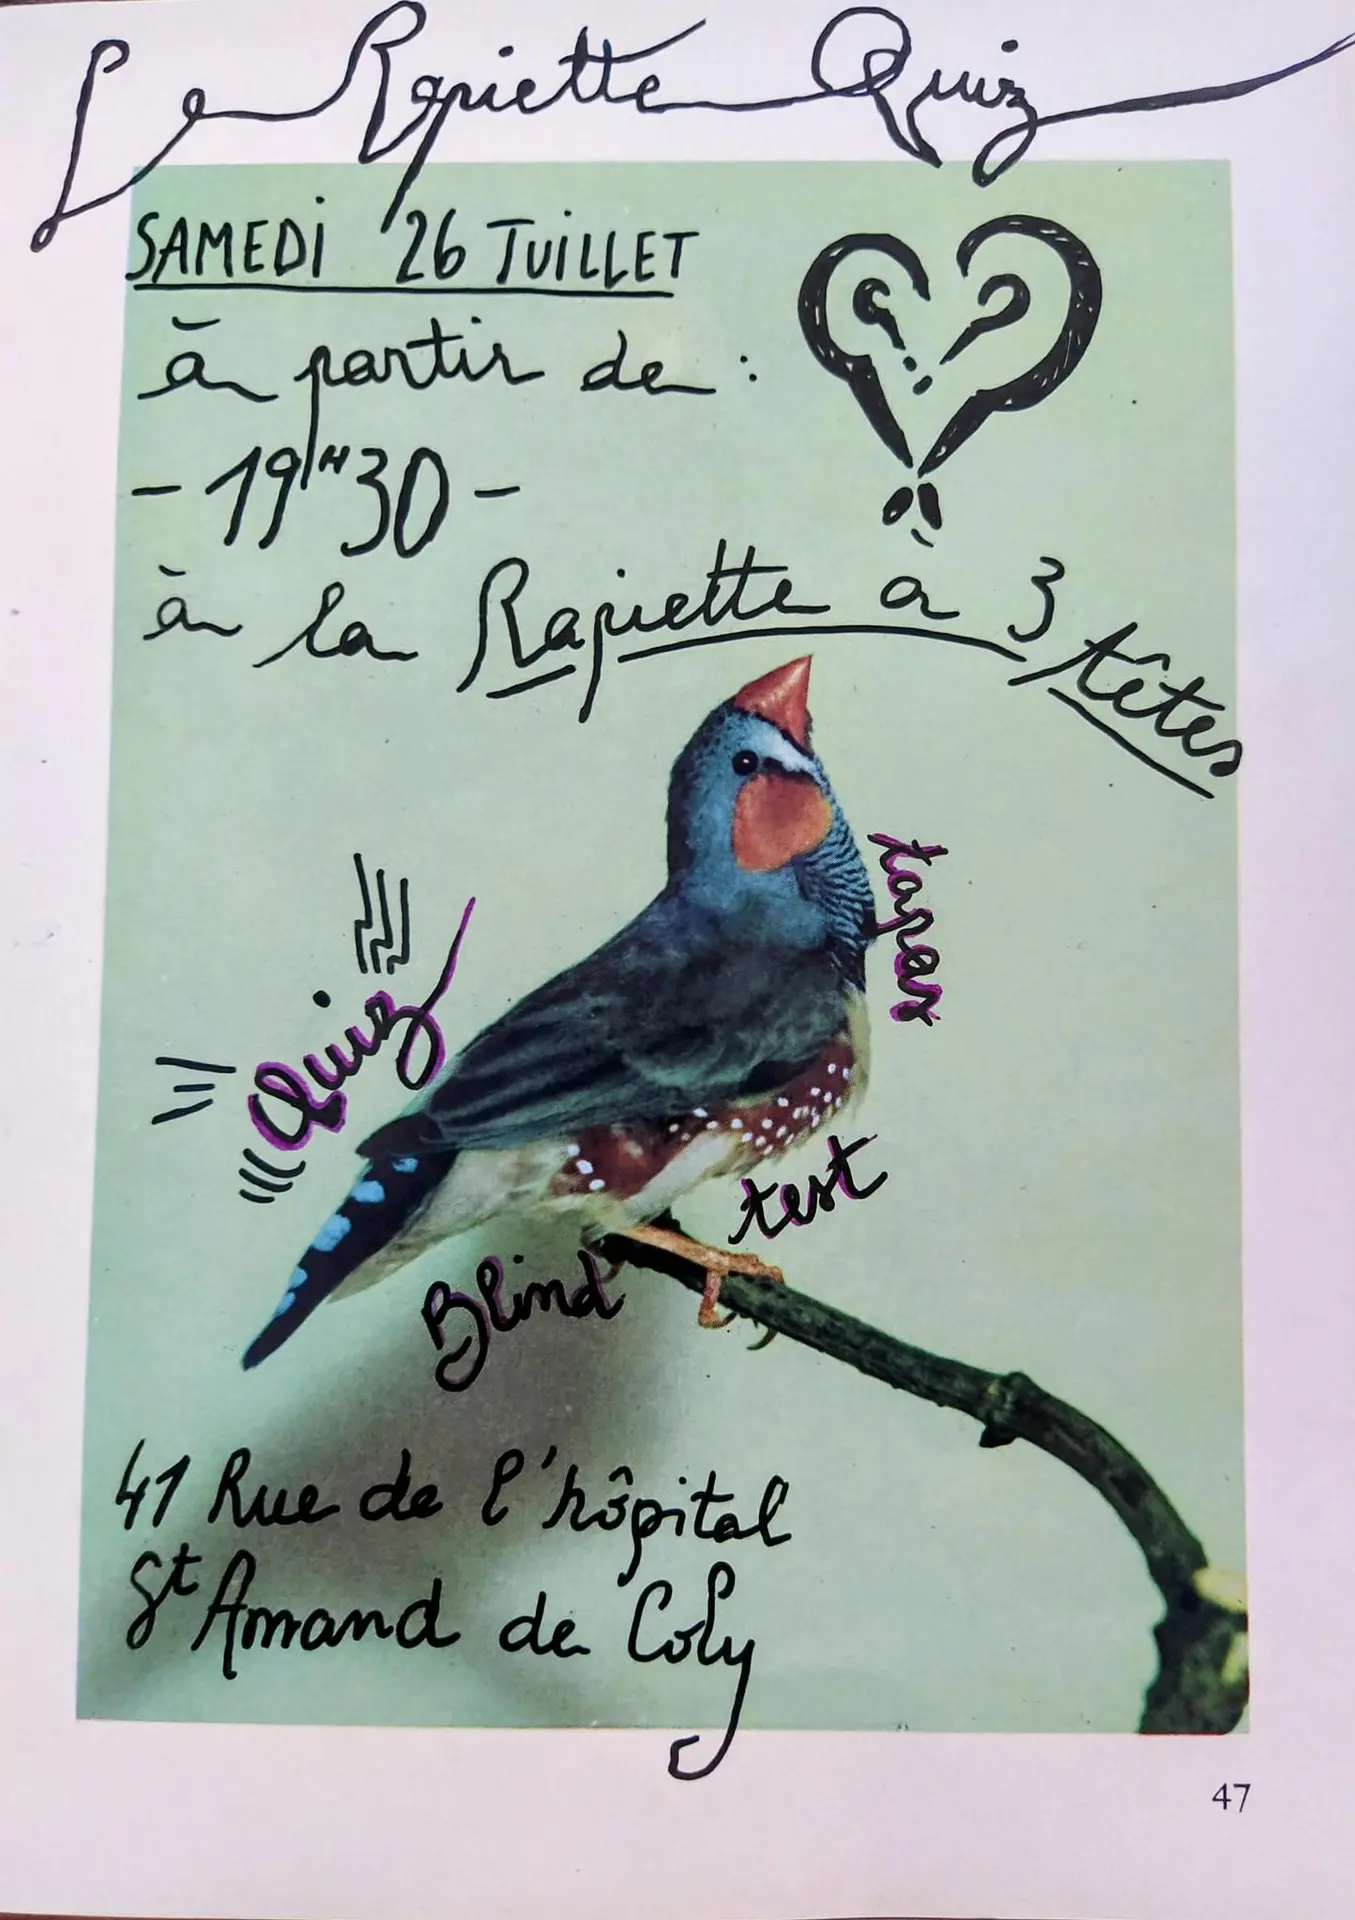 Le Rapiette Quiz
SAMEDI 26 JUILLET
à partir de :
- 19H30 -
à la Rapiette à 3 têtes
tapas
Quiz
test
Blind
41 Rue de l'hôpital
St Amand de Coly
47